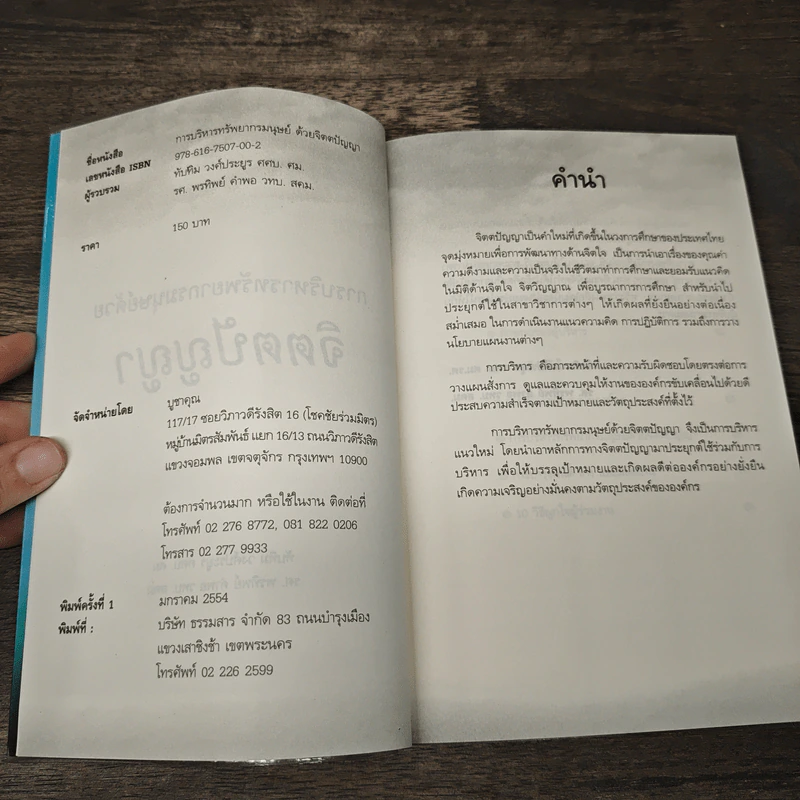 ชื่อหนังสือ การบริหารทรัพยากรมนุษย์ ด้วยจิตตปัญญา
เลขหนังสือ ISBN 978-616-7507-00-2
ผู้รวบรวม ทับทิม วงศ์ประยูร ศศบ. ศม.
รศ. พรทิพย์ คำพอ วทบ. สคม.
ราคา 150 บาท
การบริหารทรัพยากรมนุษย์ด้วย
จิตตปัญญา
จัดจำหน่ายโดย บูชาคุณ
117/17 ซอยวิภาวดีรังสิต 16 (โชคชัยร่วมมิตร)
หมู่บ้านมิตรสัมพันธ์ แยก 16/13 ถนนวิภาวดีรังสิต
แขวงจอมพล เขตจตุจักร กรุงเทพฯ 10900
ต้องการจำนวนมาก หรือใช้ในงาน ติดต่อที่
โทรศัพท์ 02 276 8772, 081 822 0206
โทรสาร 02 277 9933
พิมพ์ครั้งที่ 1 มกราคม 2554
พิมพ์ที่ : บริษัท ธรรมสาร จำกัด 83 ถนนบำรุงเมือง
แขวงเสาชิงช้า เขตพระนคร
โทรศัพท์ 02 226 2599
คำนำ
จิตตปัญญาเป็นคำใหม่ที่เกิดขึ้นในวงการศึกษาของประเทศไทย
จุดมุ่งหมายเพื่อการพัฒนาทางด้านจิตใจ เป็นการนำเอาเรื่องของคุณค่า
ความดีงามและความเป็นจริงในชีวิตมาทำการศึกษาและยอมรับแนวคิด
ในมิติด้านจิตใจ จิตวิญญาณ เพื่อบูรณาการการศึกษา สำหรับนำไป
ประยุกต์ใช้ในสาขาวิชาการต่างๆ ให้เกิดผลที่ยั่งยืนอย่างต่อเนื่อง
สม่ำเสมอ ในการดำเนินงานแนวความคิด การปฏิบัติการ รวมถึงการวาง
นโยบายแผนงานต่างๆ
การบริหาร คือภาระหน้าที่และความรับผิดชอบโดยตรงต่อการ
วางแผนสั่งการ ดูแลและควบคุมให้งานขององค์กรขับเคลื่อนไปด้วยดี
ประสบความสำเร็จตามเป้าหมายและวัตถุประสงค์ที่ตั้งไว้
การบริหารทรัพยากรมนุษย์ด้วยจิตตปัญญา จึงเป็นการบริหาร
แนวใหม่ โดยนำเอาหลักการทางจิตตปัญญามาประยุกต์ใช้ร่วมกับการ
บริหาร เพื่อให้บรรลุเป้าหมายและเกิดผลดีต่อองค์กรอย่างยั่งยืน
เกิดความเจริญอย่างมั่นคงตามวัตถุประสงค์ขององค์กร